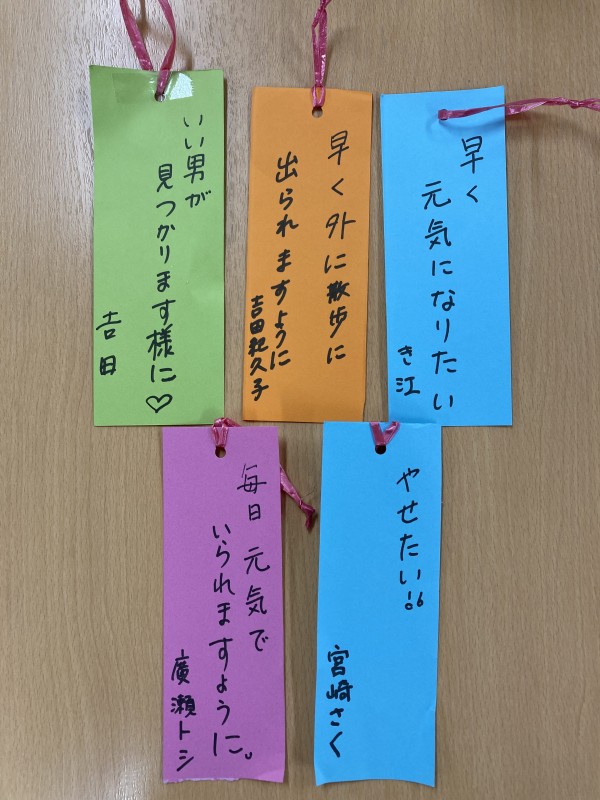 いい男が
見つかります様に♡
吉田
早く外に散歩に
出られますように
吉田紀久子
早く
元気になりたい
き江
毎日元気で
いられますように。
廣瀬トシ
やせたい!!
宮崎さく